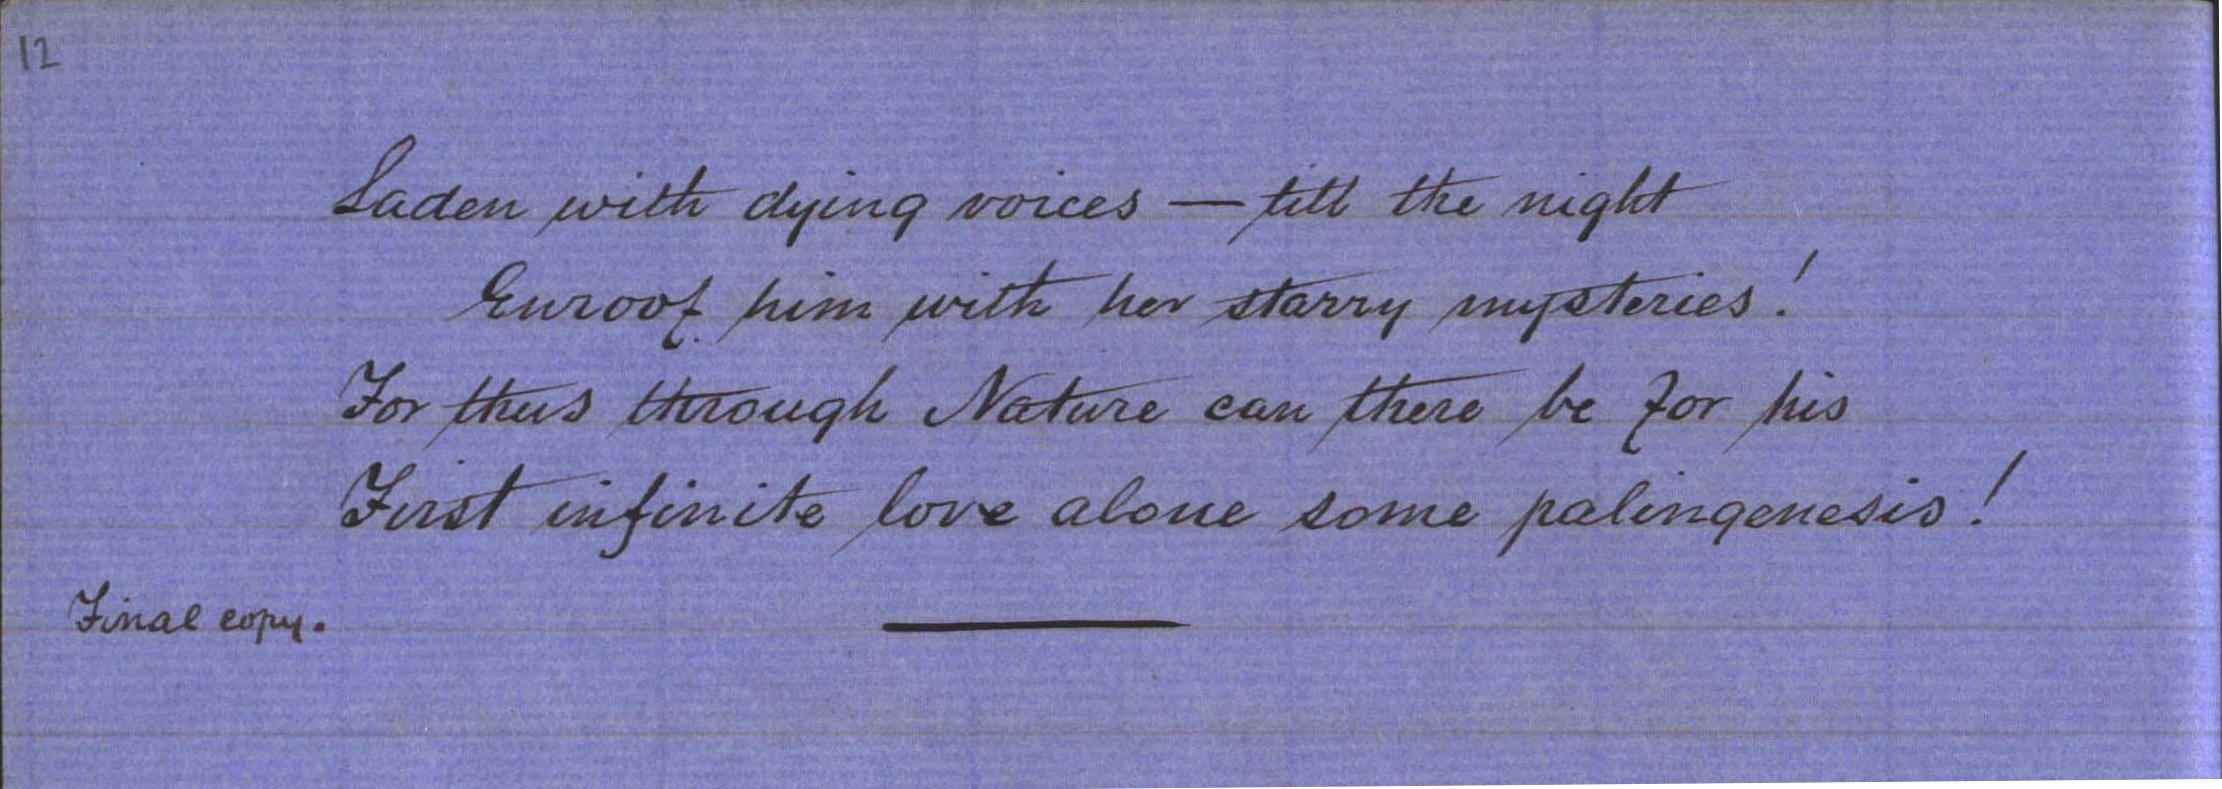 12
Laden with dying voices — till the night
Enroof him with her starry mysteries!
For thus through Nature can there be for his
First infinite love alone some palingenesis!
Final copy.